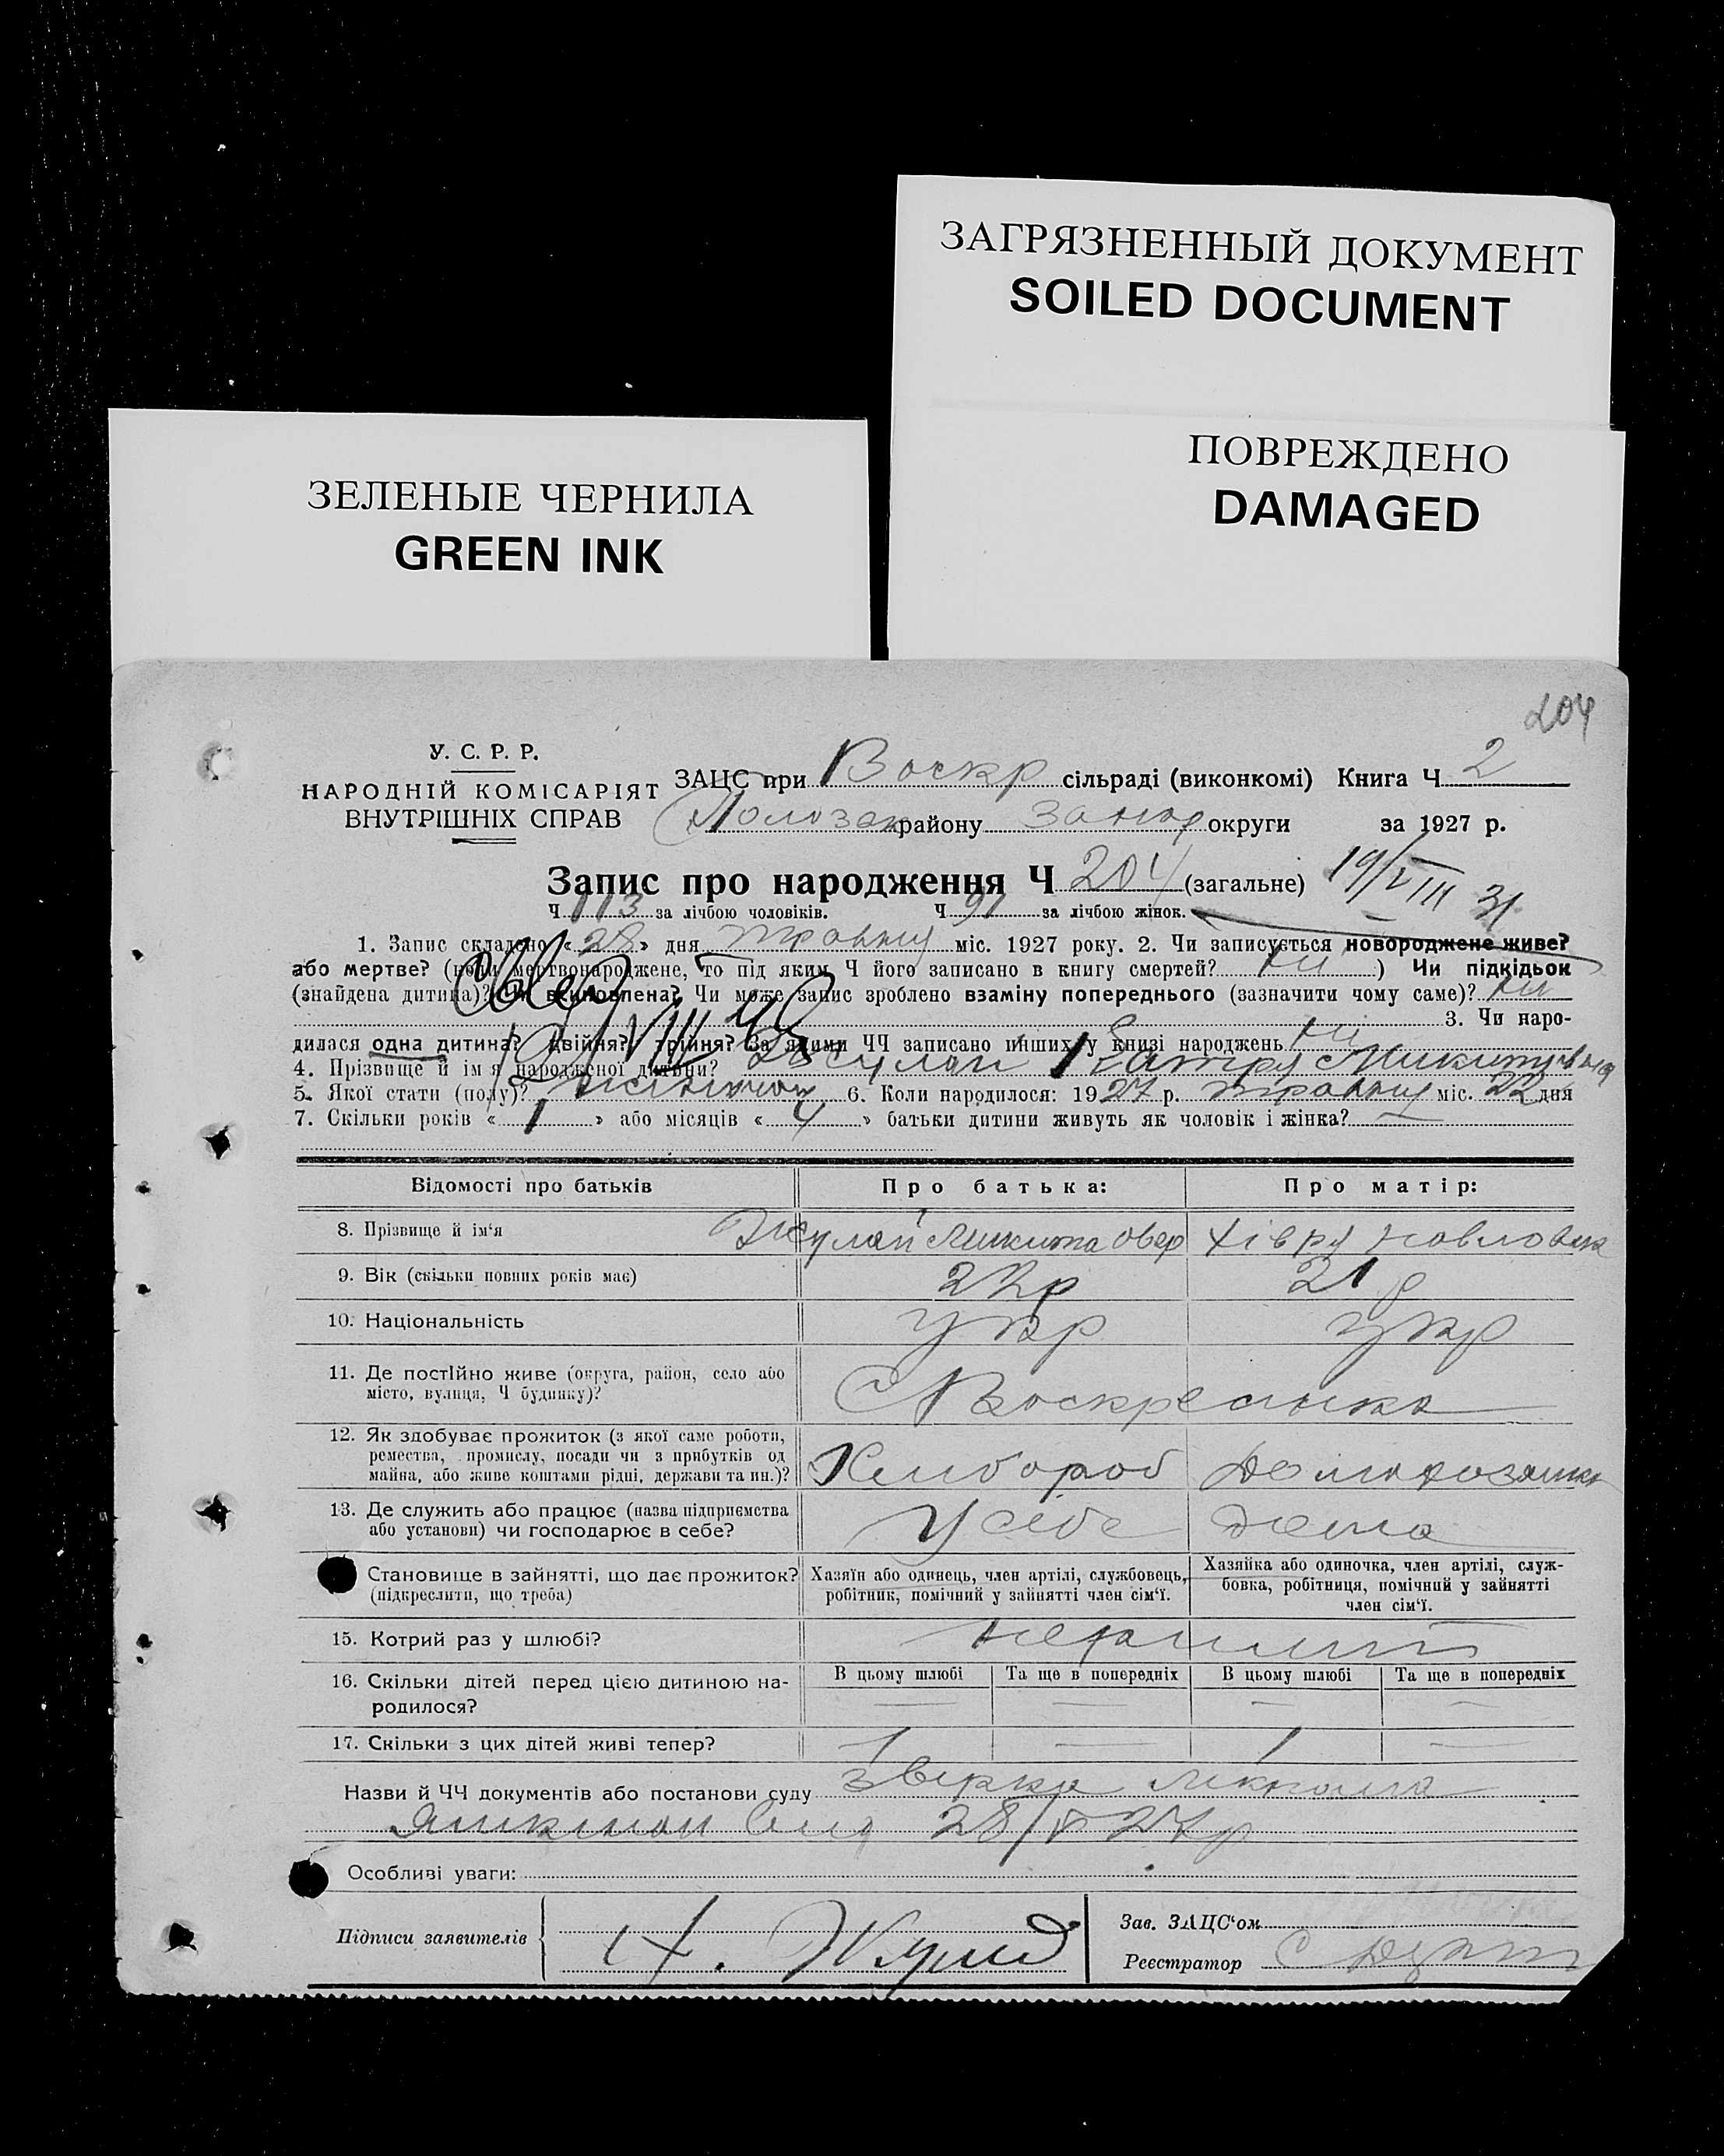 ЗАГРЯЗНЕННЫЙ ДОКУМЕНТ
SOILED DOCUMENT
ПОВРЕЖДЕНО
DAMAGED
ЗЕЛЕНЫЕ ЧЕРНИЛА
GREEN INK
204
У. С. Р. Р.
НАРОДНІЙ КОМІСАРІЯТ
ВНУТРІШНІХ СПРАВ
ЗАЦС при Воскр сільраді (виконкомі) Книга Ч 2
району округи за 1927 р.
Запис про народження Ч 204 (загальне) 19/VIII 31
Ч 113 за лічбою чоловіків. Ч 91 за лічбою жінок.
1. Запис складено «28» дня травня міс. 1927 року. 2. Чи записується новороджене живе?
або мертве? (коли мертвонароджене, то під яким Ч його записано в книгу смертей? ні) Чи підкідьок
(знайдена дитина)? Чи вкиновлена? Чи може запис зроблено взаміну попереднього (зазначити чому саме)? ні
3. Чи наро-
дилася одна дитина? двійня? трійня? За якими ЧЧ записано инших у книзі народжень ні
4. Прізвище й ім'я народженої дитини? Микитовна
5. Якої стати (полу)? 6. Коли народилося: 1927 р. травня міс. 22 дня
7. Скільки років «1» або місяців «4» батьки дитини живуть як чоловік і жінка? —
Відомості про батьків Про батька: Про матір:
8. Прізвище й ім'я Жулай Микита Хівря Павловна
9. Вік (скільки повних років має) 22р 21р
10. Національність укр укр
11. Де постійно живе (округа, район, село або
місто, вулиця, Ч будинку)?
С Воскресенка
12. Як здобуває прожиток (з якої саме роботи,
ремества, промислу, посади чи з прибутків од
майна, або живе коштами рідні, держави та ин.)?
Хлибороб Домохозяика
13. Де служить або працює (назва підприємства
або установи) чи господарює в себе?
У себе дома
Становище в зайнятті, що дає прожиток?
(підкреслити, що треба)
Хазяїн або одинець, член артілі, службовець,
робітник, помічний у зайнятті член сім'ї.
Хазяйка або одиночка, член артілі, служ-
бовка, робітниця, помічний у зайнятті
член сім'ї.
15. Котрий раз у шлюбі?
16. Скільки дітей перед цією дитиною на-
родилося?
В цьому шлюбі Та ще в попередніх В цьому шлюбі Та ще в попередніх
— — — —
17. Скільки з цих дітей живі тепер? 1 — 1 —
Назви й ЧЧ документів або постанови суду
28/V 27р
Особливі уваги:
Підписи заявителів
Зав. ЗАЦС'ом
Реєстратор